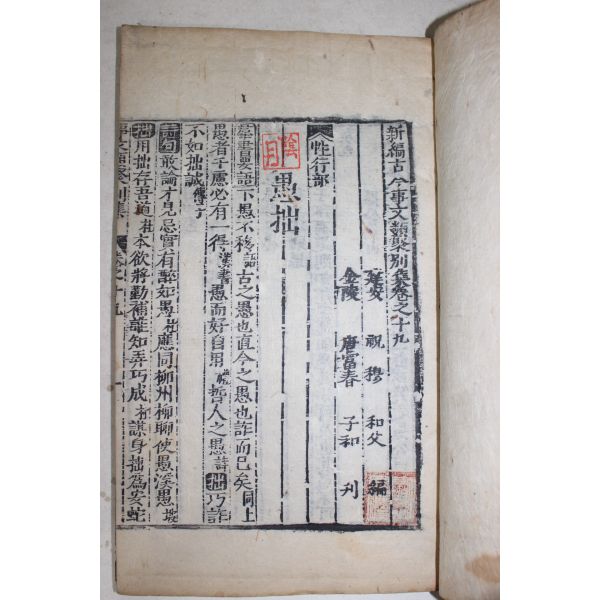 新編古今事文類聚別集卷之十九
建安 祝穆 和父 編
金陵 唐富春 子和 刊
性行部
愚拙
羣書要語下愚不移語古之愚也直今之愚也詐而已矣同上
愚者千慮必有一得漢書愚而好自用哲人之愚詩拙巧詐
不如拙誠
詩句敢論才見忌實有醉如愚應同柳州柳聊使愚溪愚坡
拙用拙存吾道杜本欲將勤補誰知弄巧成謀身拙爲安蛇